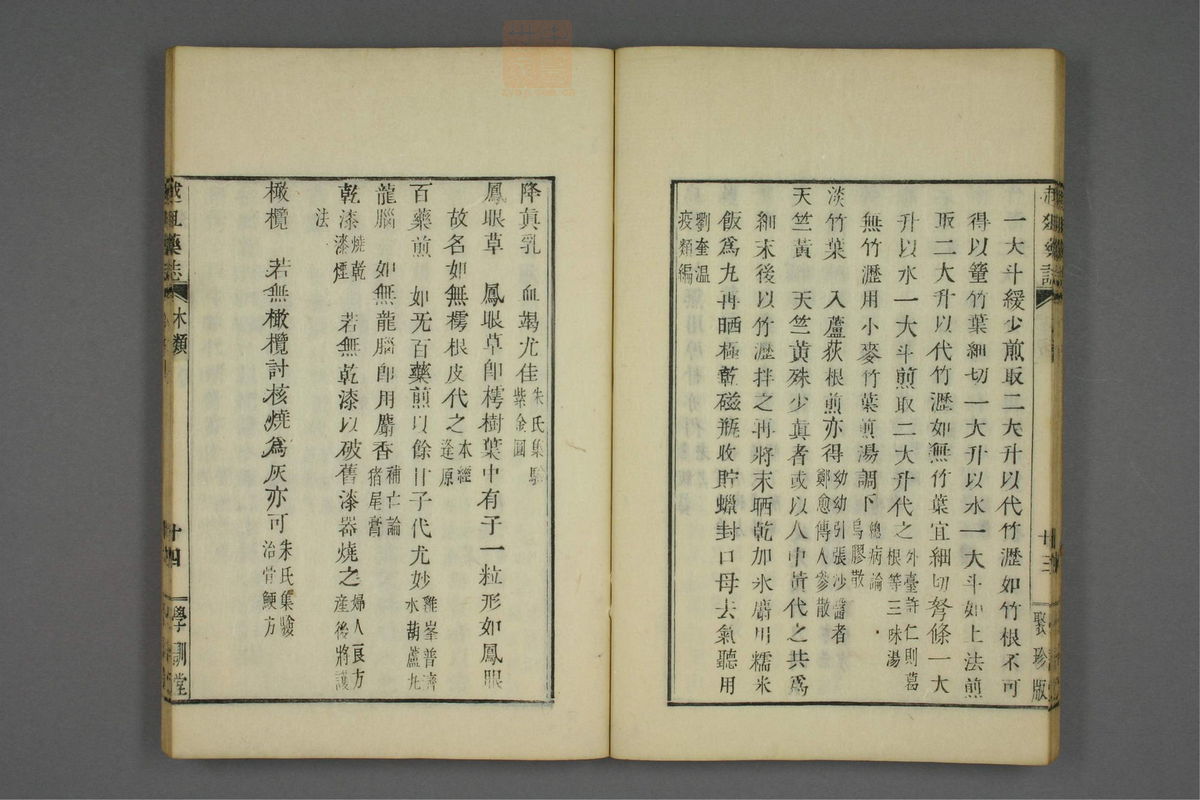 一大斗緩少煎取二大升以代竹瀝如竹根不可
得以篁竹葉細切一大升以水一大斗如上法煎
取二大升以代竹瀝如無竹葉宜細切弩條一大
升以水一大斗煎取二大升代之外臺許仁則葛根等三味湯
無竹瀝用小麥竹葉煎湯調下總病論烏膠散
淡竹葉 入蘆荻根煎亦得幼幼引張沙醫者鄭愈傳人參散
天竺黃 天竺黃殊少真者或以人中黃代之共為
細末後以竹瀝拌之再將末晒乾加氷麝用糯米
飯為丸再晒極乾磁瓶收貯蠟封口母去氣聽用
劉奎溫疫類編
廿三
聚珍版
降真乳 血竭尤佳朱氏集驗紫金圓
鳳眼草 鳳眼草卽樗樹葉中有子一粒形如鳳眼
故名如無樗根皮代之本經逢原
百藥煎 如无百藥煎以餘甘子代尤妙雞峯普濟水葫蘆丸
龍腦 如無龍腦卽用麝香補亡論猪尾膏
乾漆燒乾漆煙法 若無乾漆以破舊漆器燒之婦人良方産後將護
橄欖 若無橄欖討核燒為灰亦可朱氏集驗治骨鯁方
藥誌
木類
十四
學訓堂